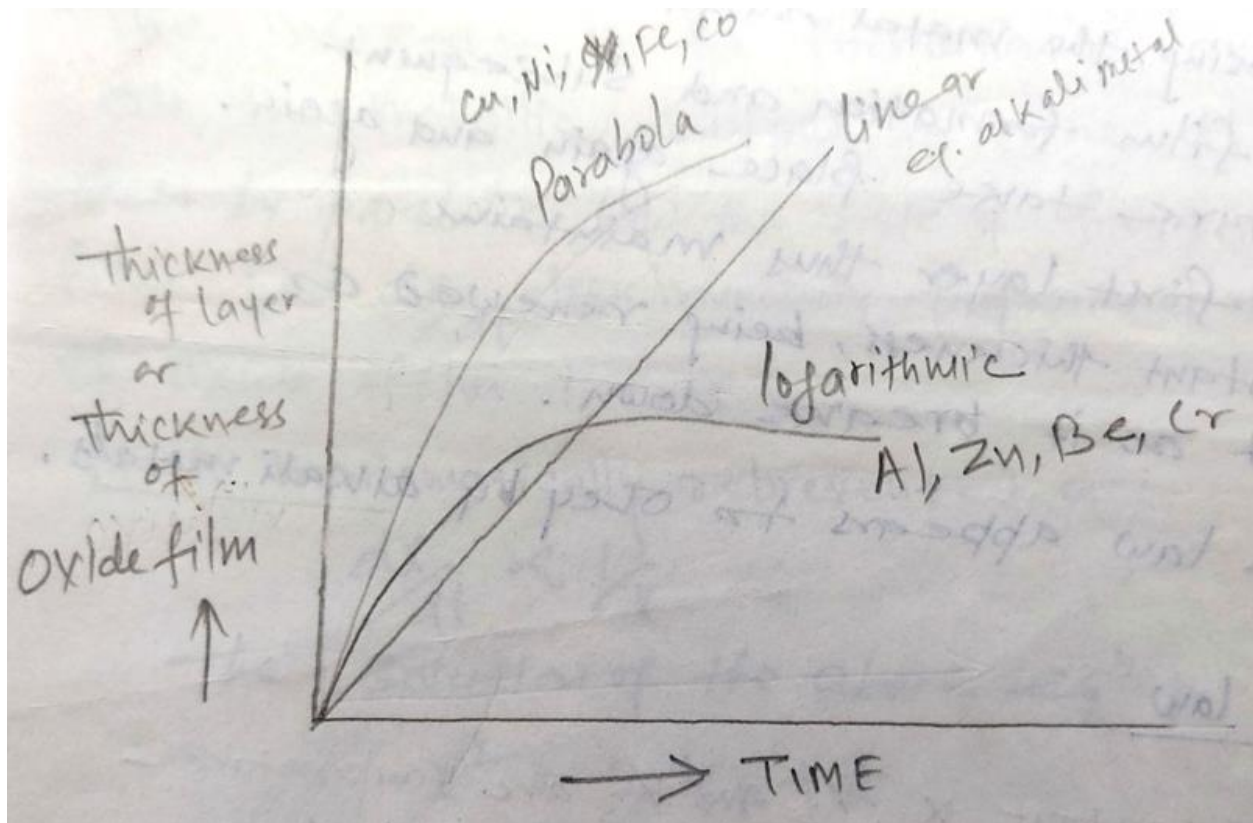 Cu, Ni, Fe, Co
Parabola
linear
eg. alkali metal
Thickness
of layer
or
Thickness
of
Oxide film
logarithmic
Al, Zn, Be, Cr
TIME